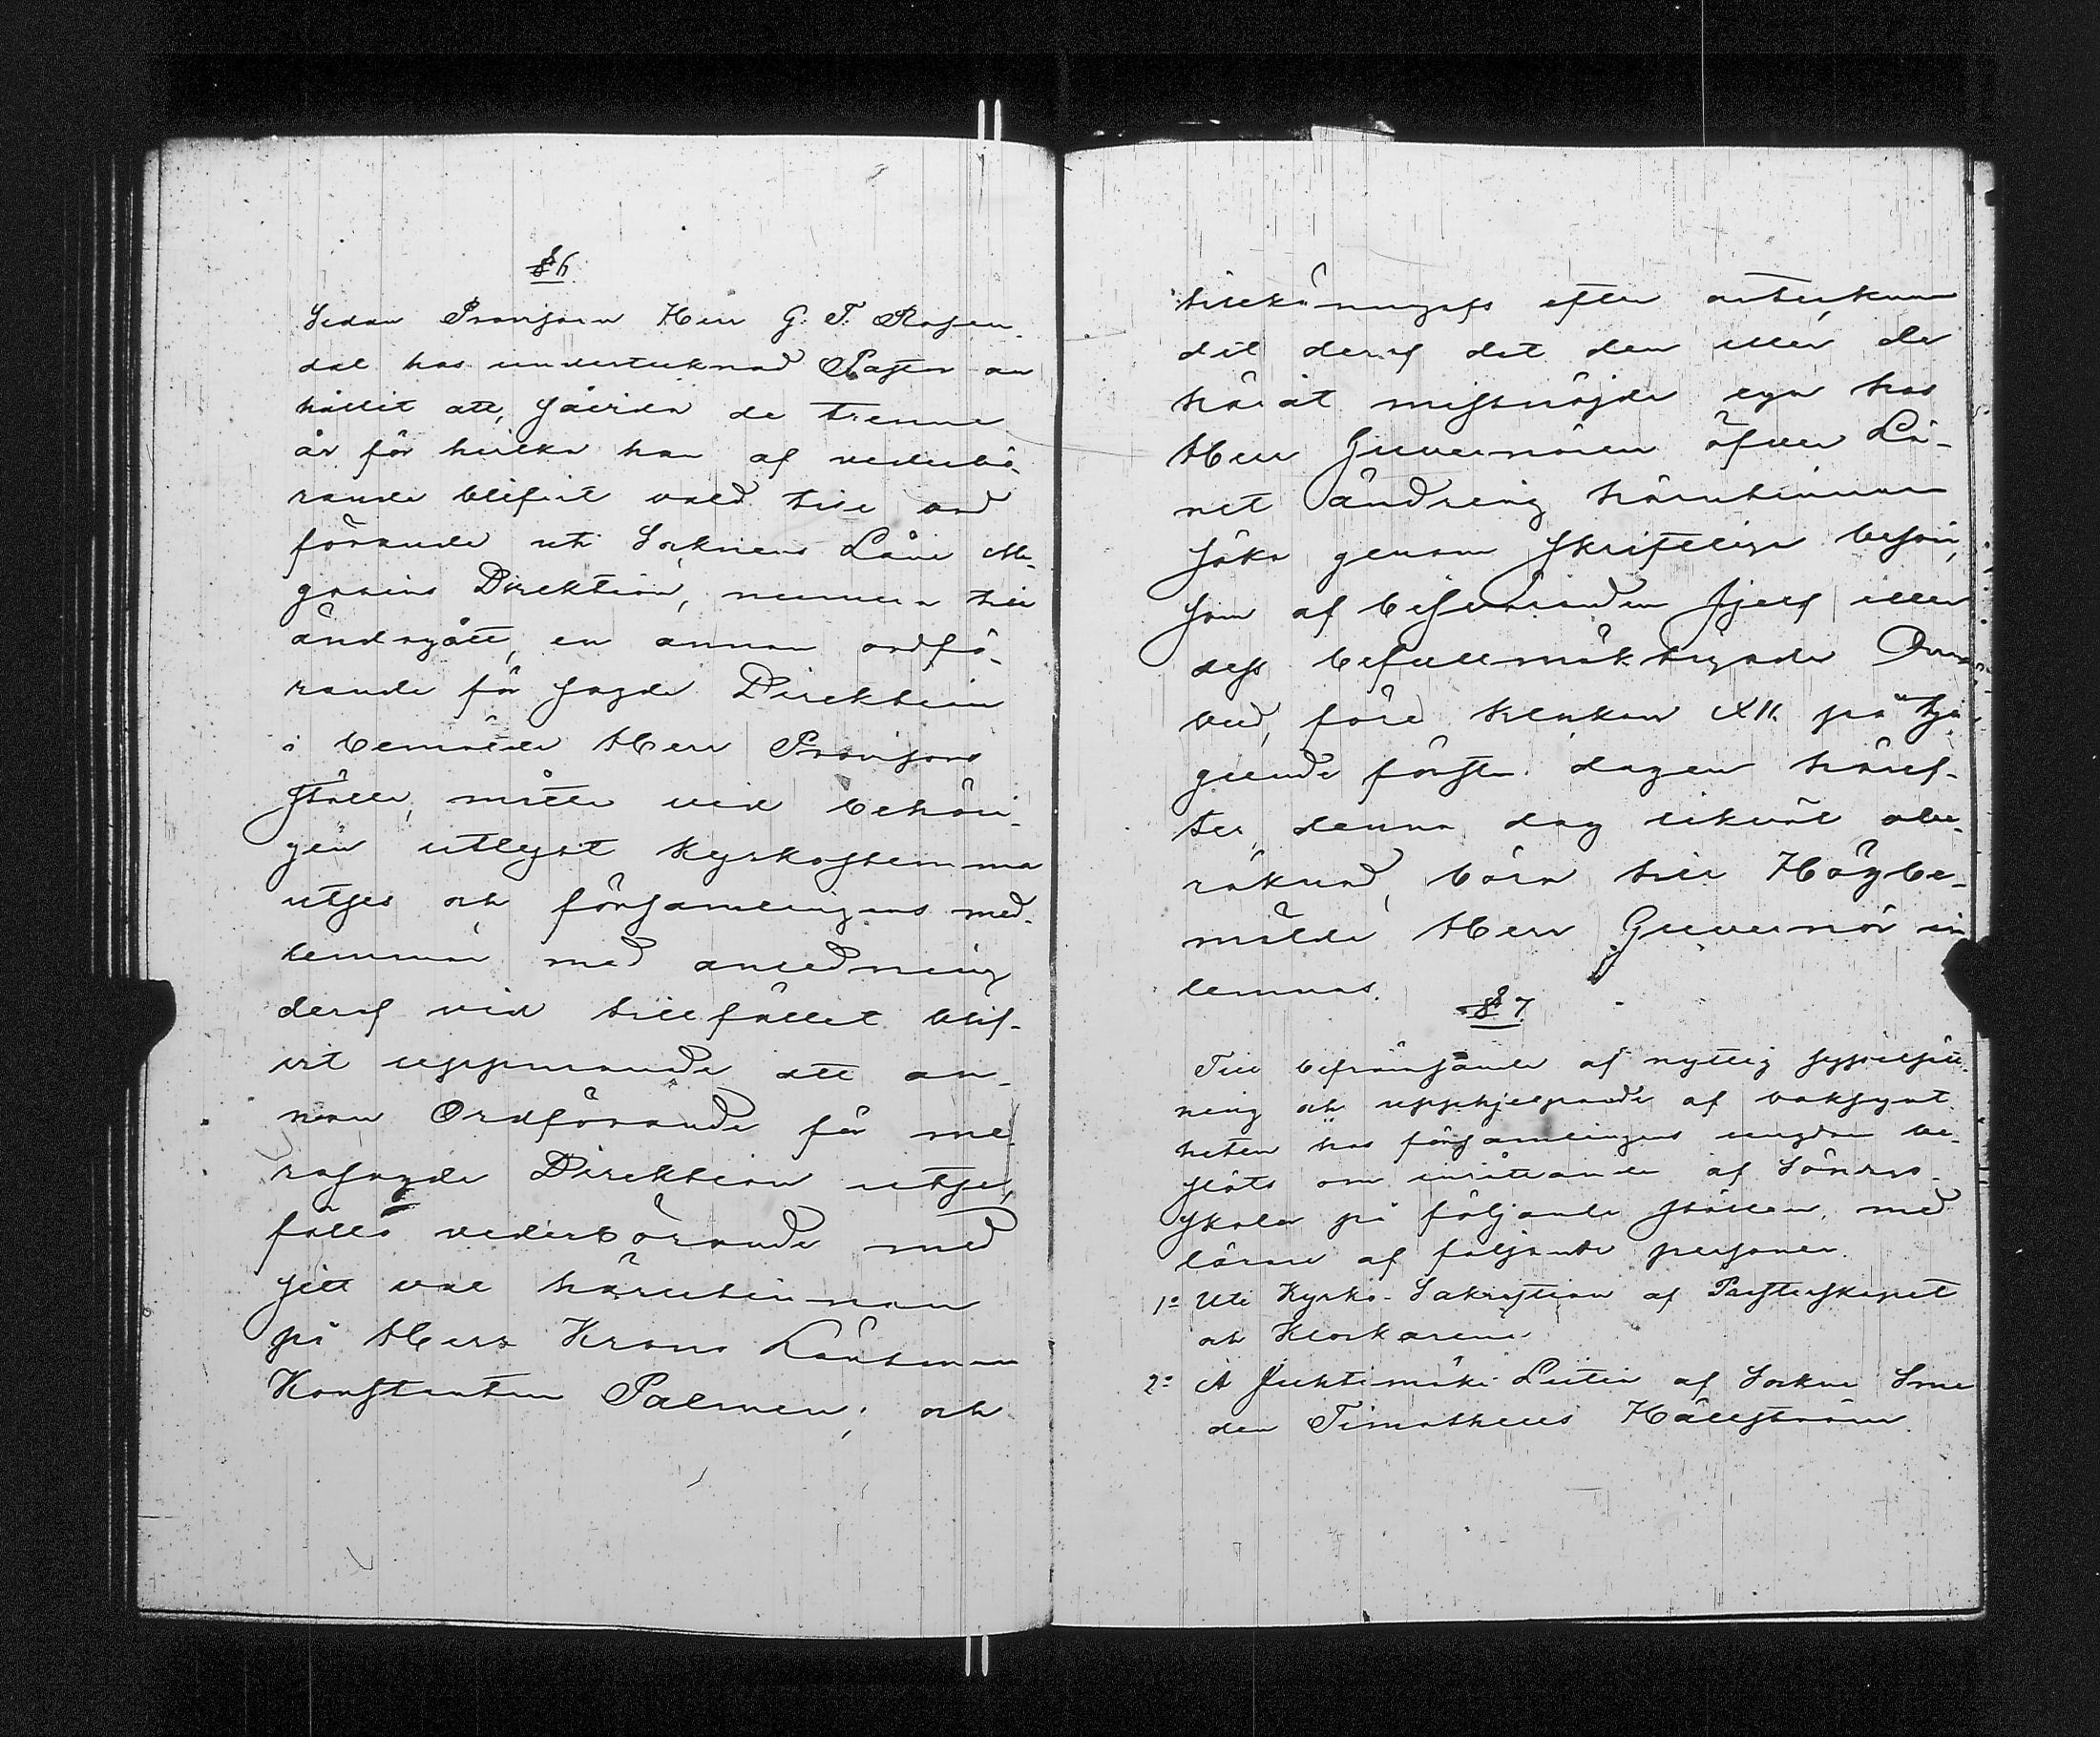 § 6
Sedan Provisorn Herr G. T. Rosen-
dal hos undertecknad Pastor an
hållit att, såvida de trenne
år för hvilka han af vederbö-
rande blifvit vald till ord
förande uti Socknens Låne Ma-
gasins Direktion, numera till
ändagått, en annan ordfö-
rande för sagde Direktion
i bemälde Herr Provisors
ställe, måtte vid behöri-
gen utlyst kyrkostemma
utses och församlingens med-
lemmar med anledning
deraf vid tillfället blif-
vit uppmanade att an-
nan Ordförande för me-
rasagde Direktion utse,
föllo vederbörande med
sitt val härutinnan
på Herr Krono Länsman
Konstantin Palmen; och
tillkännagafs efter antecknan
det deraf det den eller de
häråt missnöjde ega hos
Herr Guvernören öfver Lä-
net ändring härutinnan
söka genom skriftliga besvär,
som af besväranden sjelf eller
dess befullmäktigade Om
bud, före klockan XII på tju
giende första dagen häref-
ter, denna dag likväl obe-
räknad, böra till Högbe-
mälde Herr Guvernör in
lemnas.
§ 7
Till befrämjande af nyttig sysselsätt-
ning och upphjelpande af
heten hos församlingens ungdom be-
slöts om inrättande af Söndags-
skolor på följande ställen, med
lärare af följande personer.
1o Uti Kyrko-Sakristian af Presterskapet
och Klockarene
2o A af Sockne Sme
den Timotheus Hällström.